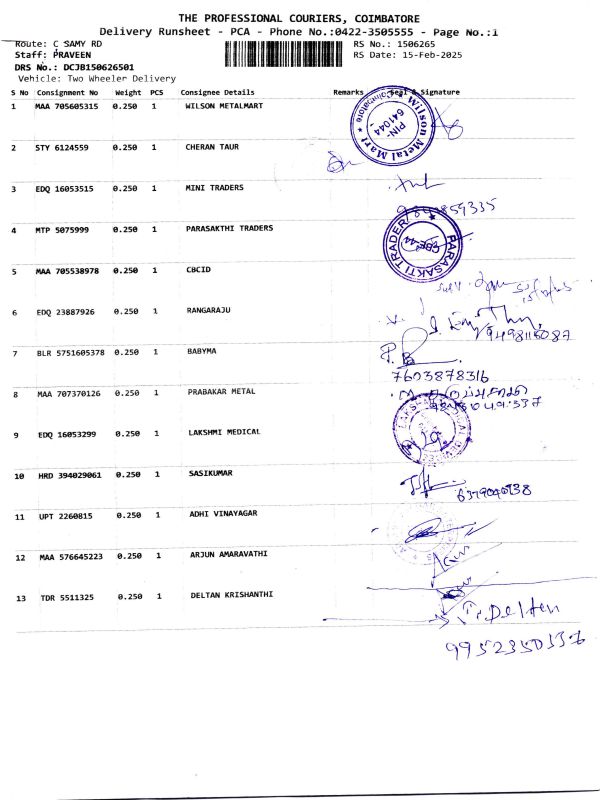 THE PROFESSIONAL COURIERS, COIMBATORE
Delivery Runsheet - PCA - Phone No.:0422-3505555 - Page No.:1
Route: C SAMY RD
RS No.: 1506265
Staff: PRAVEEN
RS Date: 15-Feb-2025
DRS No.: DCJB150626501
Vehicle: Two Wheeler Delivery
S No Consignment No Weight PCS Consignee Details Remarks Seal & Signature
1 MAA 705605315 0.250 1 WILSON METALMART
Wilson Metal Mart
Coimbatore
PIN-
641044
2 STY 6124559 0.250 1 CHERAN TAUR
3 EDQ 16053515 0.250 1 MINI TRADERS
4 MTP 5075999 0.250 1 PARASAKTHI TRADERS
PARASAKTI TRADER
CBE-44
5 MAA 705538978 0.250 1 CBCID
6 EDQ 23887926 0.250 1 RANGARAJU
7 BLR 5751605378 0.250 1 BABYMA
P.B
7603878316
8 MAA 707370126 0.250 1 PRABAKAR METAL
9 EDQ 16053299 0.250 1 LAKSHMI MEDICAL
10 HRD 394029061 0.250 1 SASIKUMAR
11 UPT 2260815 0.250 1 ADHI VINAYAGAR
12 MAA 576645223 0.250 1 ARJUN AMARAVATHI
13 TDR 5511325 0.250 1 DELTAN KRISHANTHI
Delten